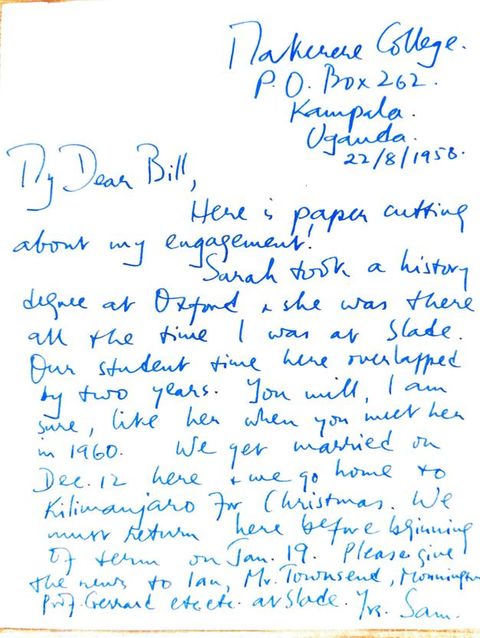 Makerere College.
P.O. Box 262.
Kampala.
Uganda.
22/8/1958.
My Dear Bill,
Here is paper cutting
about my engagement.
Sarah took a history
degree at Oxford & she was there
all the time I was at Slade.
Our student time here overlapped
by two years. You will, I am
sure, like her when you meet her
in 1960. We get married on
Dec. 12 here & we go home to
Kilimanjaro for Christmas. We
must return here before beginning
of term on Jan. 19. Please give
the news to Ian, Mr. Townsend, Monnington
Prof. Gerrard etc etc. at Slade. Yrs. Sam.